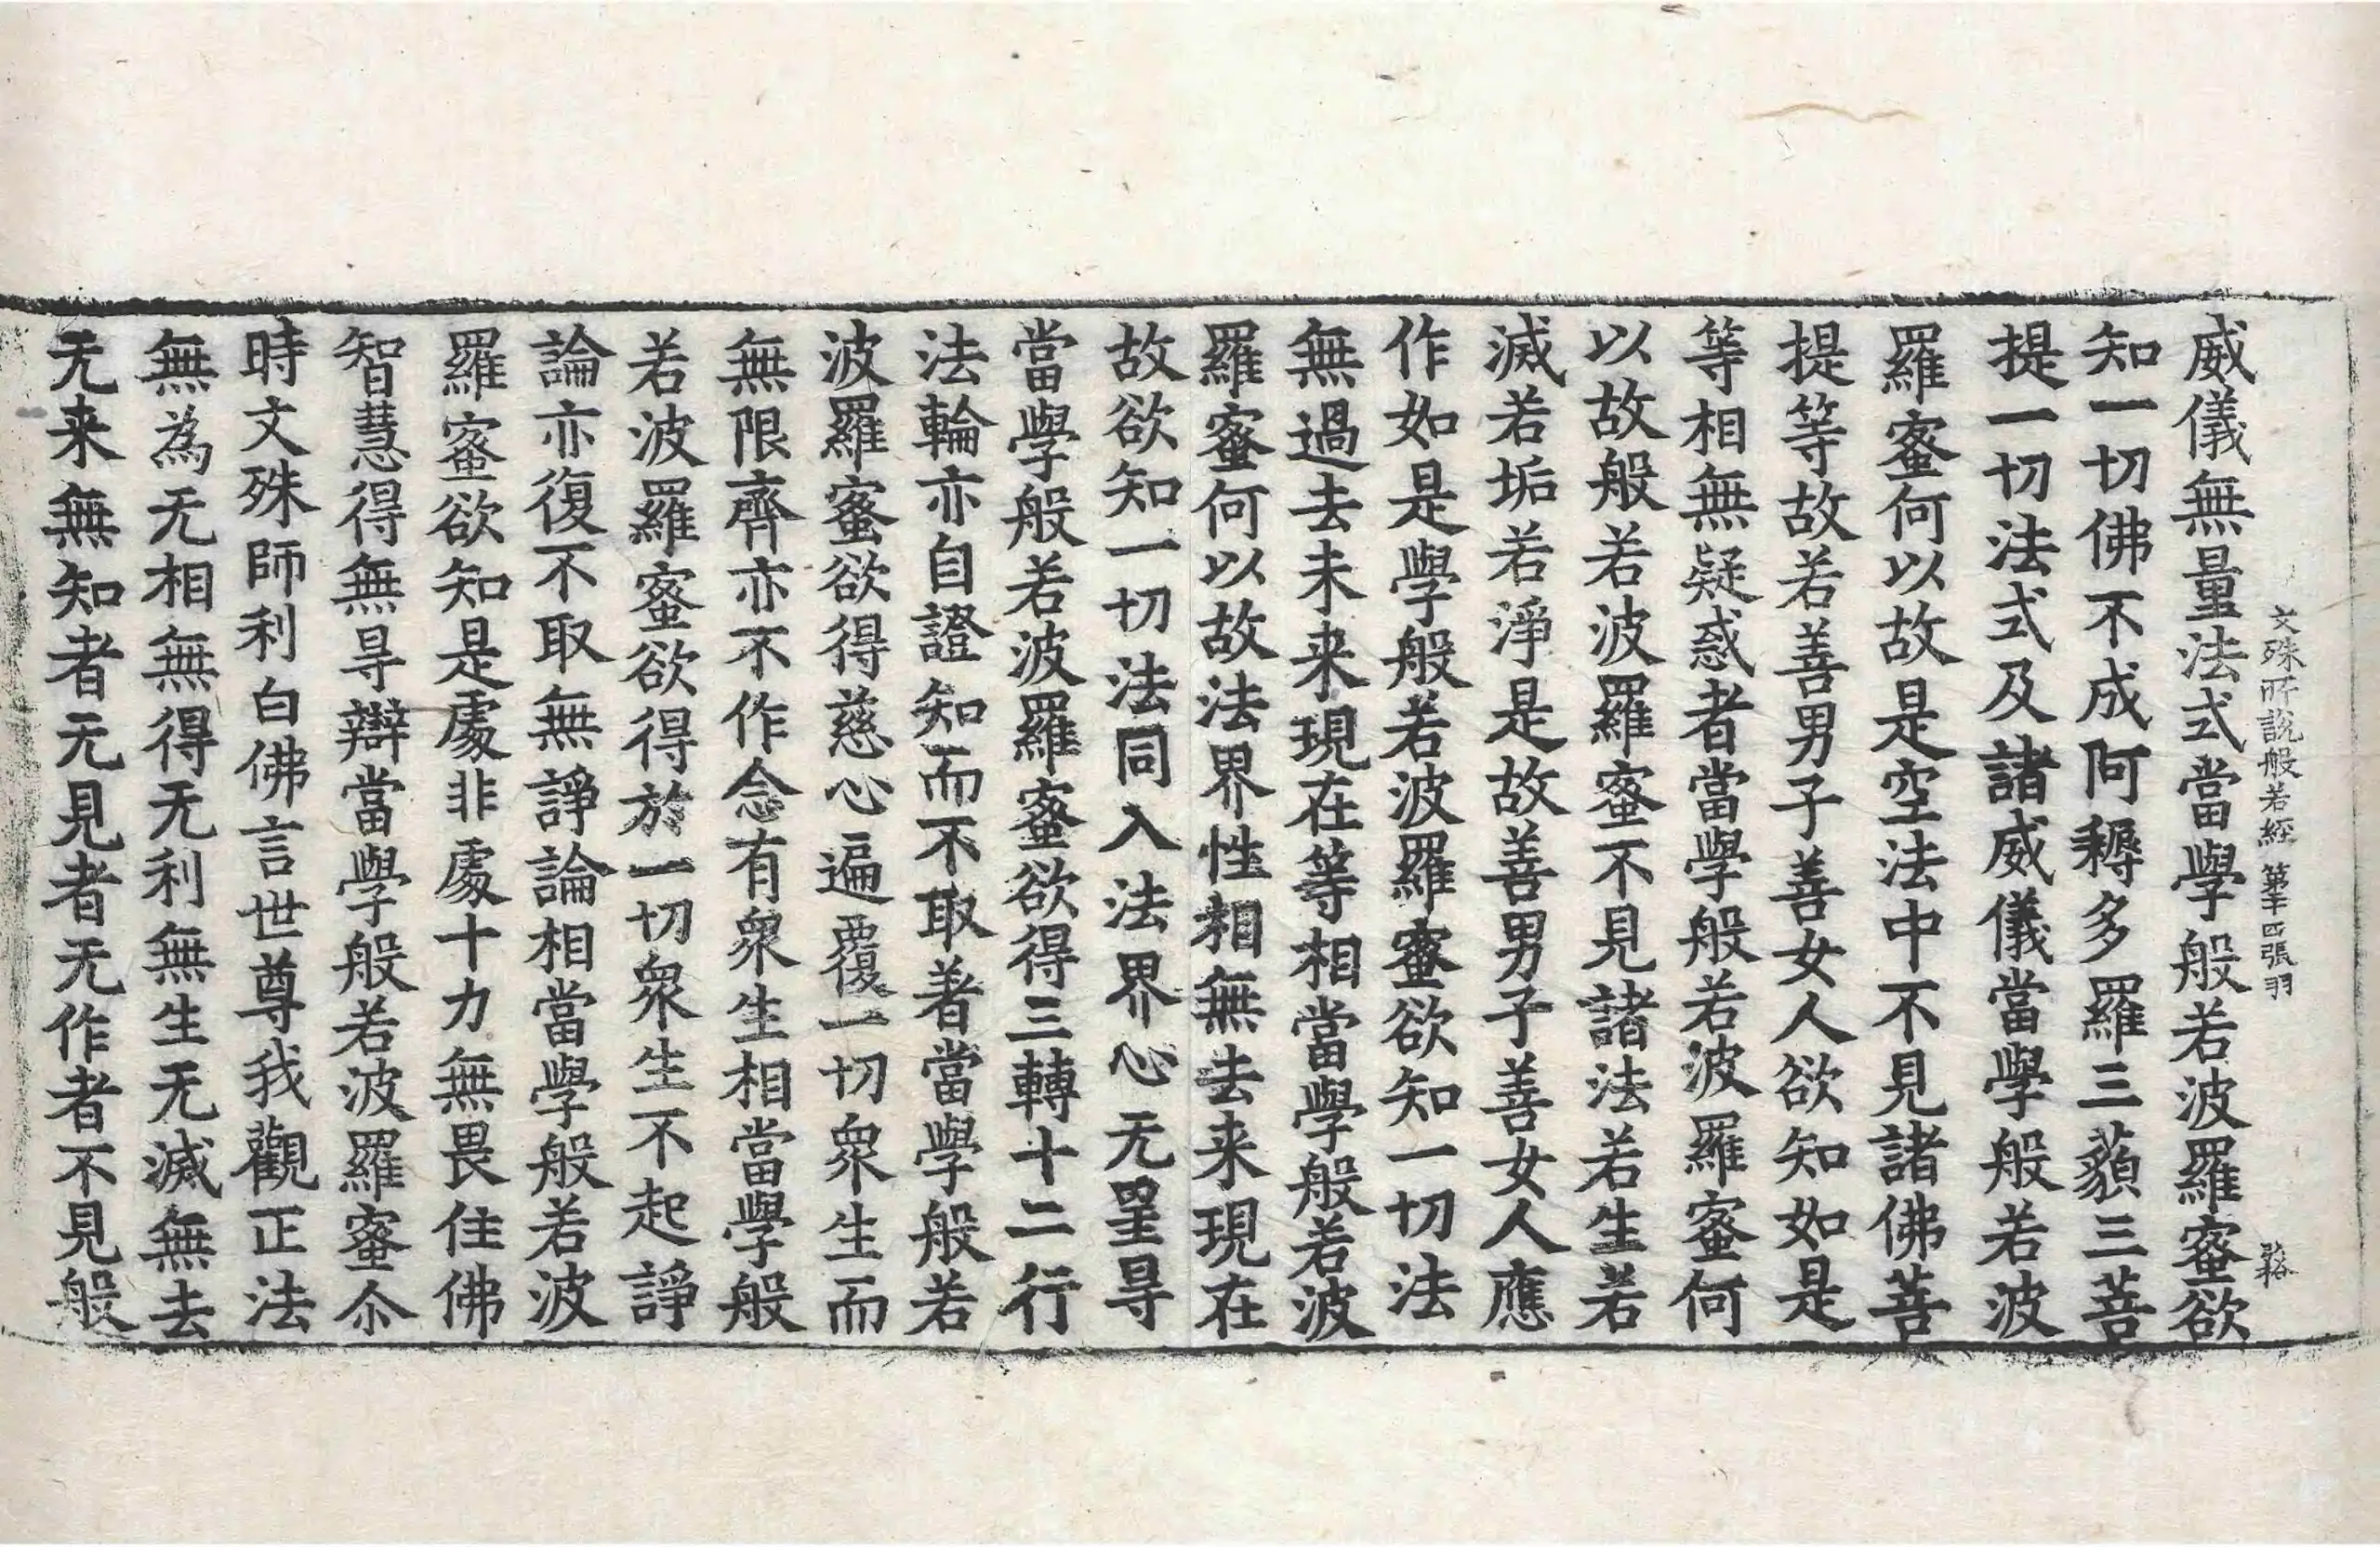 文殊所說般若經 第十四張 羽
威儀無量法式當學般若波羅蜜欲
知一切佛不成阿耨多羅三藐三菩
提一切法式及諸威儀當學般若波
羅蜜何以故是空法中不見諸佛菩
提等故若善男子善女人欲知如是
等相無疑惑者當學般若波羅蜜何
以故般若波羅蜜不見諸法若生若
滅若垢若淨是故善男子善女人應
作如是學般若波羅蜜欲知一切法
無過去未来現在等相當學般若波
羅蜜何以故法界性相無去来現在
故欲知一切法同入法界心无罣㝵
當學般若波羅蜜欲得三轉十二行
法輪亦自證知而不取著當學般若
波羅蜜欲得慈心遍覆一切衆生而
無限齊亦不作念有衆生相當學般
若波羅蜜欲得於一切衆生不起諍
論亦復不取無諍論相當學般若波
羅蜜欲知是處非處十力無畏住佛
智慧得無㝵辯當學般若波羅蜜尒
時文殊師利白佛言世尊我觀正法
無為无相無得无利無生无滅無去
无来無知者无見者无作者不見般